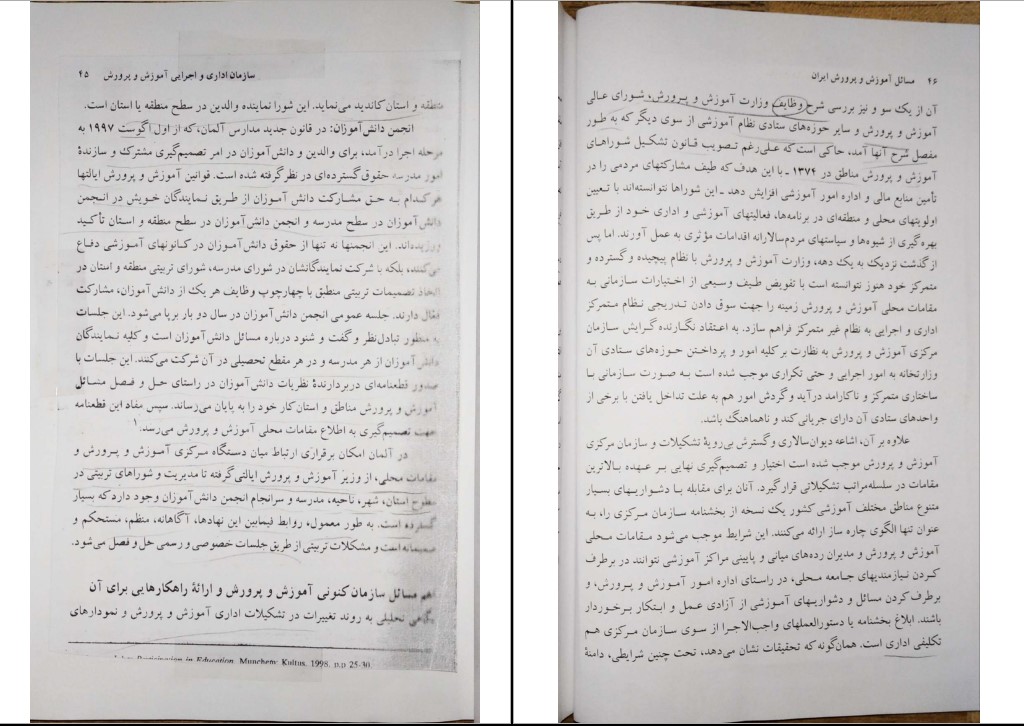 سازمان اداری و اجرایی آموزش و پرورش ۴۵
منطقه و استان کاندید می‌نماید. این شورا نماینده والدین در سطح منطقه یا استان است.
انجمن دانش‌آموزان: در قانون جدید مدارس آلمان، که از اول اگوست ۱۹۹۷ به
مرحله اجرا درآمد، برای والدین و دانش‌آموزان در امر تصمیم‌گیری مشترک و سازندهٔ
امور مدرسه حقوق گسترده‌ای در نظر گرفته شده است. قوانین آموزش و پرورش ایالتها
هر کدام به حق مشارکت دانش آموزان از طریق نمایندگان خویش در انجمن
دانش‌آموزان در سطح مدرسه و انجمن دانش‌آموزان در سطح منطقه و استان تأکید
ورزیده‌اند. این انجمنها نه تنها از حقوق دانش‌آموزان در کانونهای آموزشی دفاع
می‌کنند، بلکه با شرکت نمایندگانشان در شورای مدرسه، شورای تربیتی منطقه و استان در
اتخاذ تصمیمات تربیتی منطبق با چهارچوب وظایف هر یک از دانش‌آموزان، مشارکت
فعال دارند. جلسه عمومی انجمن دانش‌آموزان در سال دو بار برپا می‌شود. این جلسات
به منظور تبادل‌نظر و گفت و شنود درباره مسائل دانش‌آموزان است و کلیه نمایندگان
دانش‌آموزان از هر مدرسه و در هر مقطع تحصیلی در آن شرکت می‌کنند. این جلسات با
صدور قطعنامه‌ای دربردارندهٔ نظریات دانش‌آموزان در راستای حل و فصل مسائل
آموزش و پرورش مناطق و استان کار خود را به پایان می‌رساند. سپس مفاد این قطعنامه
جهت تصمیم‌گیری به اطلاع مقامات محلی آموزش و پرورش می‌رسد.۱
در آلمان امکان برقراری ارتباط میان دستگاه مرکزی آموزش و پرورش و
مقامات محلی، از وزیر آموزش و پرورش ایالتی گرفته تا مدیریت و شوراهای تربیتی در
سطوح استان، شهر، ناحیه، مدرسه و سرانجام انجمن دانش‌آموزان وجود دارد که بسیار
گسترده است. به طور معمول، روابط فیمابین این نهادها، آگاهانه، منظم، مستحکم و
صمیمانه است و مشکلات تربیتی از طریق جلسات خصوصی و رسمی حل و فصل می‌شود.
اهم مسائل سازمان کنونی آموزش و پرورش و ارائهٔ راهکارهایی برای آن
نگاهی تحلیلی به روند تغییرات در تشکیلات اداری آموزش و پرورش و نمودارهای
Participation in Education. Munchem: Kultus, 1998. p.p 25-30.
۴۶ مسائل آموزش و پرورش ایران
آن از یک سو و نیز بررسی شرح وظایف وزارت آموزش و پرورش، شورای عالی
آموزش و پرورش و سایر حوزه‌های ستادی نظام آموزشی از سوی دیگر که به طور
مفصل شرح آنها آمد، حاکی است که علی‌رغم تصویب قانون تشکیل شوراهای
آموزش و پرورش مناطق در ۱۳۷۲ ـ با این هدف که طیف مشارکتهای مردمی را در
تأمین منابع مالی و اداره امور آموزشی افزایش دهد ـ این شوراها نتوانسته‌اند با تعیین
اولویتهای محلی و منطقه‌ای در برنامه‌ها، فعالیتهای آموزشی و اداری خود از طریق
بهره‌گیری از شیوه‌ها و سیاستهای مردم‌سالارانه اقدامات مؤثری به عمل آورند. اما پس
از گذشت نزدیک به یک دهه، وزارت آموزش و پرورش با نظام پیچیده و گسترده و
متمرکز خود هنوز نتوانسته است با تفویض طیف وسیعی از اختیارات سازمانی به
مقامات محلی آموزش و پرورش زمینه را جهت سوق دادن تدریجی نظام متمرکز
اداری و اجرایی به نظام غیر متمرکز فراهم سازد. به اعتقاد نگارنده گرایش سازمان
مرکزی آموزش و پرورش به نظارت بر کلیه امور و پرداختن حوزه‌های ستادی آن
وزارتخانه به امور اجرایی و حتی تکراری موجب شده است به صورت سازمانی با
ساختاری متمرکز و ناکارامد درآید و گردش امور هم به علت تداخل یافتن با برخی از
واحدهای ستادی آن دارای جریانی کند و ناهماهنگ باشد.
علاوه بر آن، اشاعه دیوان‌سالاری و گسترش بی‌رویهٔ تشکیلات و سازمان مرکزی
آموزش و پرورش موجب شده است اختیار و تصمیم‌گیری نهایی بر عهده بالاترین
مقامات در سلسله‌مراتب تشکیلاتی قرار گیرد. آنان برای مقابله با دشواریهای بسیار
متنوع مناطق مختلف آموزشی کشور یک نسخه از بخشنامه سازمان مرکزی را، به
عنوان تنها الگوی چاره ساز ارائه می‌کنند. این شرایط موجب می‌شود مقامات محلی
آموزش و پرورش و مدیران رده‌های میانی و پایینی مراکز آموزشی نتوانند در برطرف
کردن نیازمندیهای جامعه محلی، در راستای اداره امور آموزش و پرورش، و
برطرف کردن مسائل و دشواریهای آموزشی از آزادی عمل و ابتکار برخوردار
باشند. ابلاغ بخشنامه یا دستورالعملهای واجب‌الاجرا از سوی سازمان مرکزی هم
تکلیفی اداری است. همان‌گونه که تحقیقات نشان می‌دهد، تحت چنین شرایطی، دامنهٔ